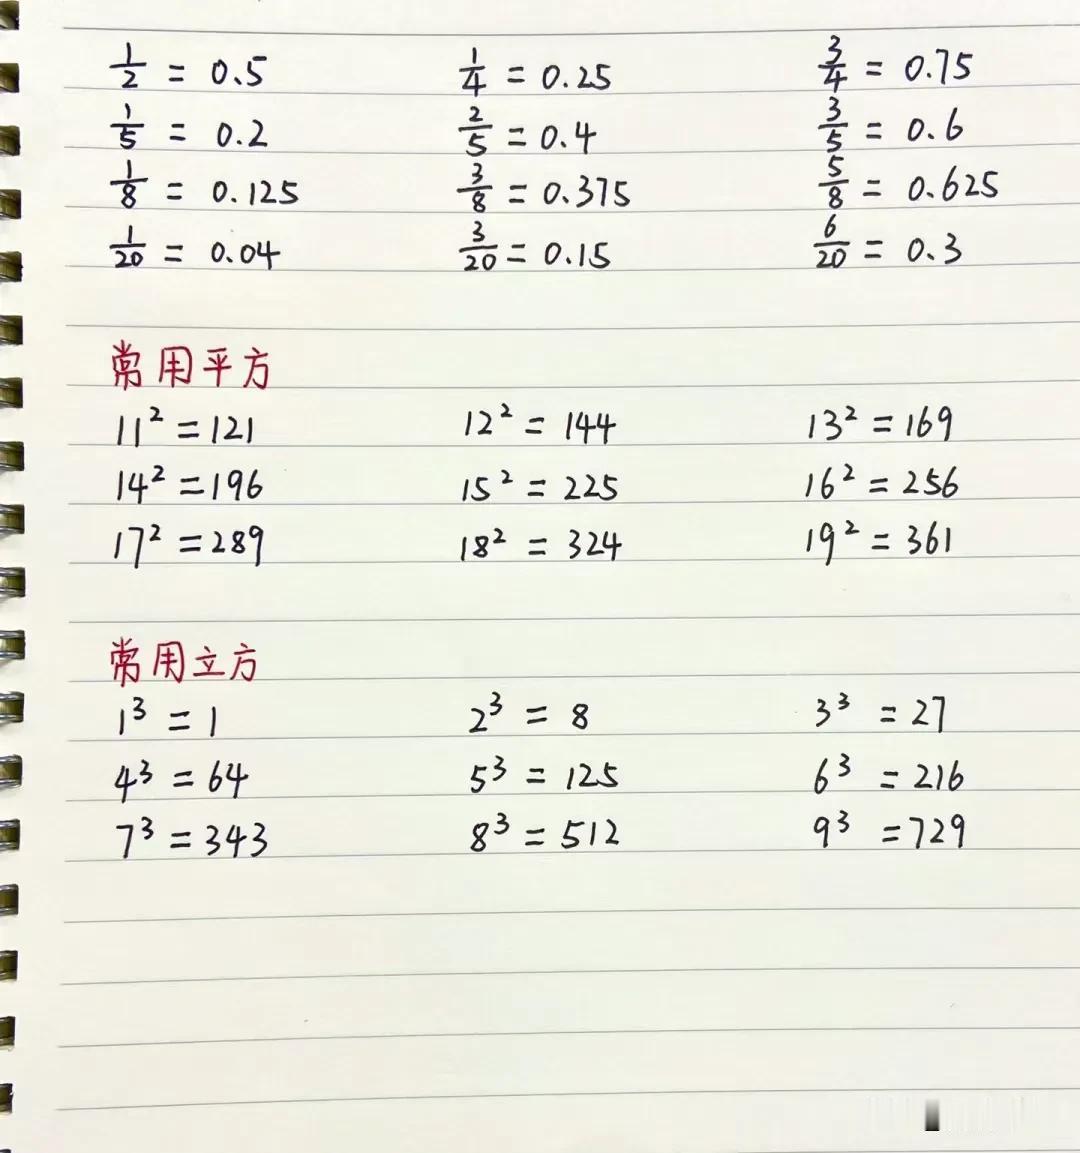 1/2 = 0.5 1/4 = 0.25 3/4 = 0.75
1/5 = 0.2 2/5 = 0.4 3/5 = 0.6
1/8 = 0.125 3/8 = 0.375 5/8 = 0.625
1/20 = 0.04 3/20 = 0.15 6/20 = 0.3
常用平方
11² = 121 12² = 144 13² = 169
14² = 196 15² = 225 16² = 256
17² = 289 18² = 324 19² = 361
常用立方
1³ = 1 2³ = 8 3³ = 27
4³ = 64 5³ = 125 6³ = 216
7³ = 343 8³ = 512 9³ = 729